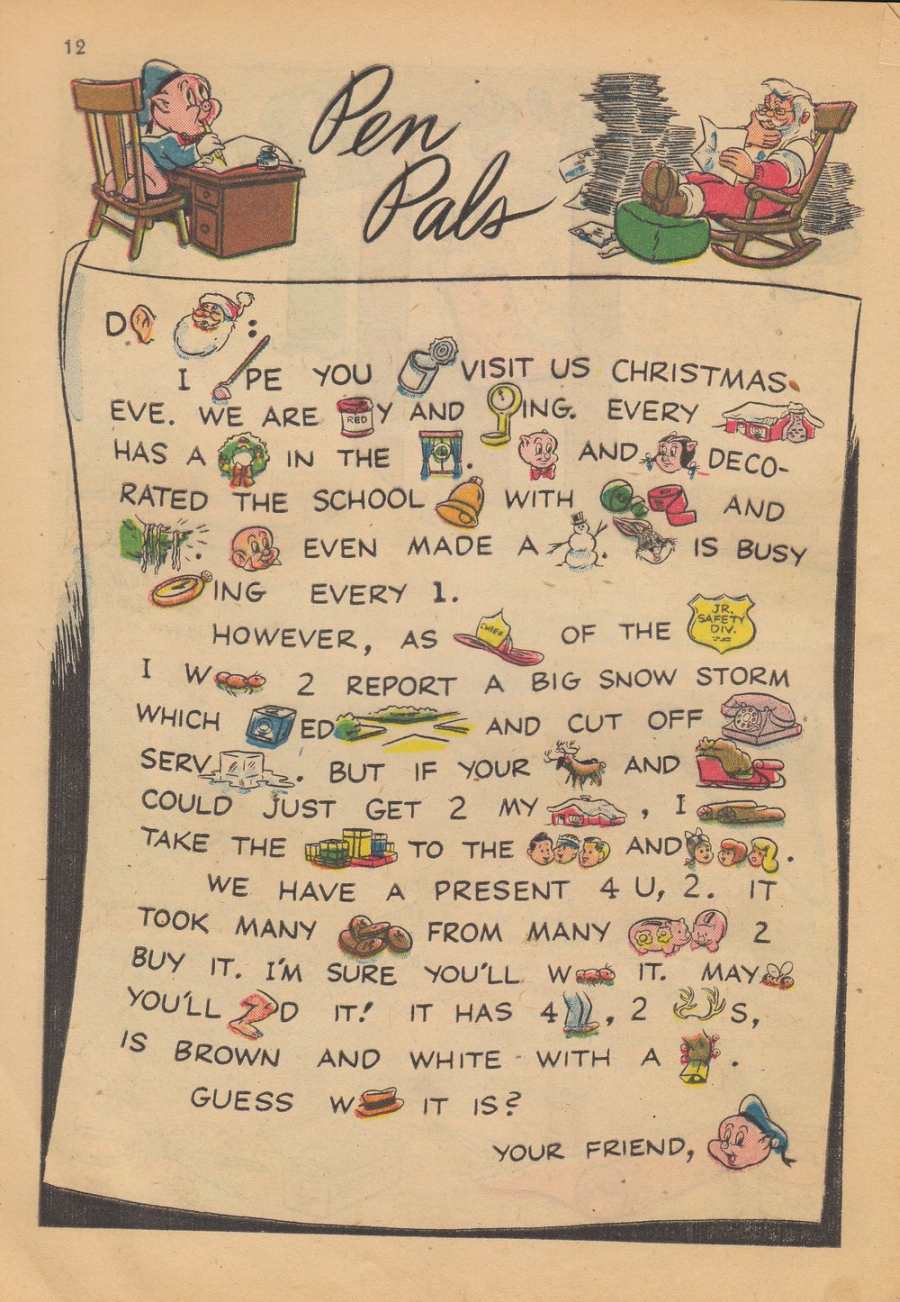 12
Pen
Pals
D :
I PE YOU VISIT US CHRISTMAS
EVE. WE ARE RED Y AND ING. EVERY
HAS A IN THE . AND DECO-
RATED THE SCHOOL WITH AND
. EVEN MADE A . IS BUSY
ING EVERY 1.
HOWEVER, AS CHIEF OF THE JR. SAFETY DIV.
I W 2 REPORT A BIG SNOW STORM
WHICH ED AND CUT OFF
SERV . BUT IF YOUR AND
COULD JUST GET 2 MY , I
TAKE THE TO THE AND .
WE HAVE A PRESENT 4 U, 2. IT
TOOK MANY FROM MANY 2
BUY IT. I'M SURE YOU'LL W IT. MAY
YOU'LL D IT! IT HAS 4 , 2 S,
IS BROWN AND WHITE WITH A .
GUESS W IT IS?
YOUR FRIEND,